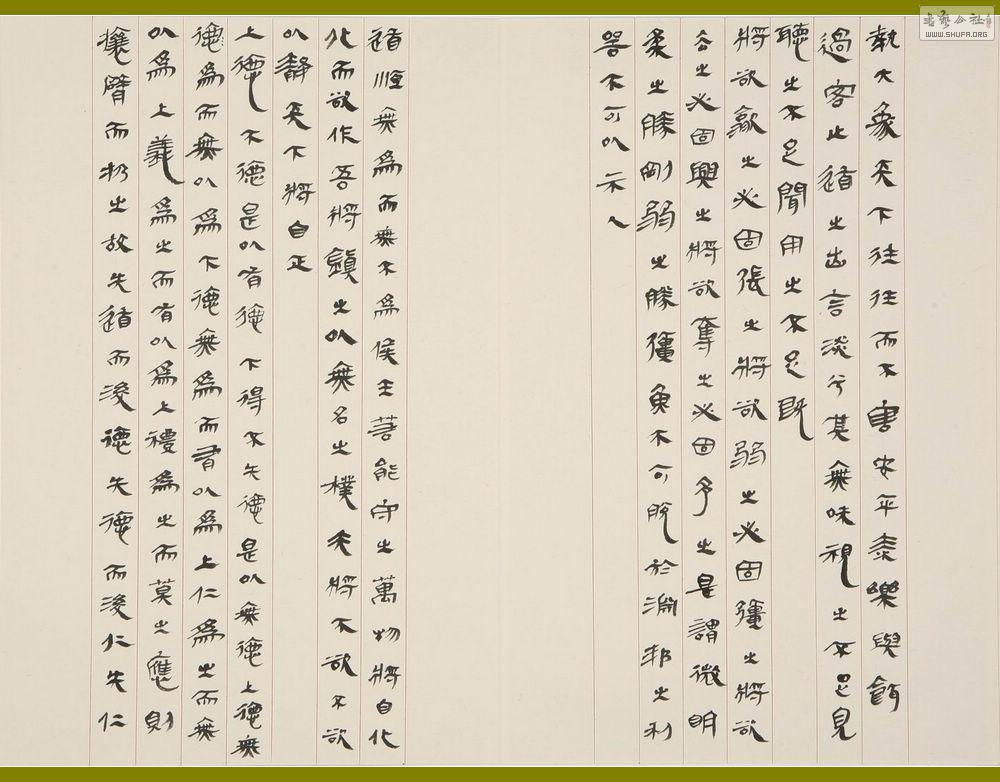 執大象天下往往而不害安平泰樂與餌
過客止道之出言淡兮其無味視之不足見
聽之不足聞用之不足既
將欲歙之必固張之將欲弱之必固彊之將欲
去之必固興之將欲奪之必固予之是謂微明
柔之勝剛弱之勝彊魚不可脫於淵邦之利
器不可以示人
道恆無為而無不為侯王若能守之萬物將自化
化而欲作吾將鎮之以無名之樸夫將不欲不欲
以靜天下將自正
上德不德是以有德下得不失德是以無德上德無
德為而無以為下德無為而有以為上仁為之而無
以為上義為之而有以為上禮為之而莫之應則
攘臂而扔之故失道而後德失德而後仁失仁
书艺公社
WWW.SHUFA.ORG